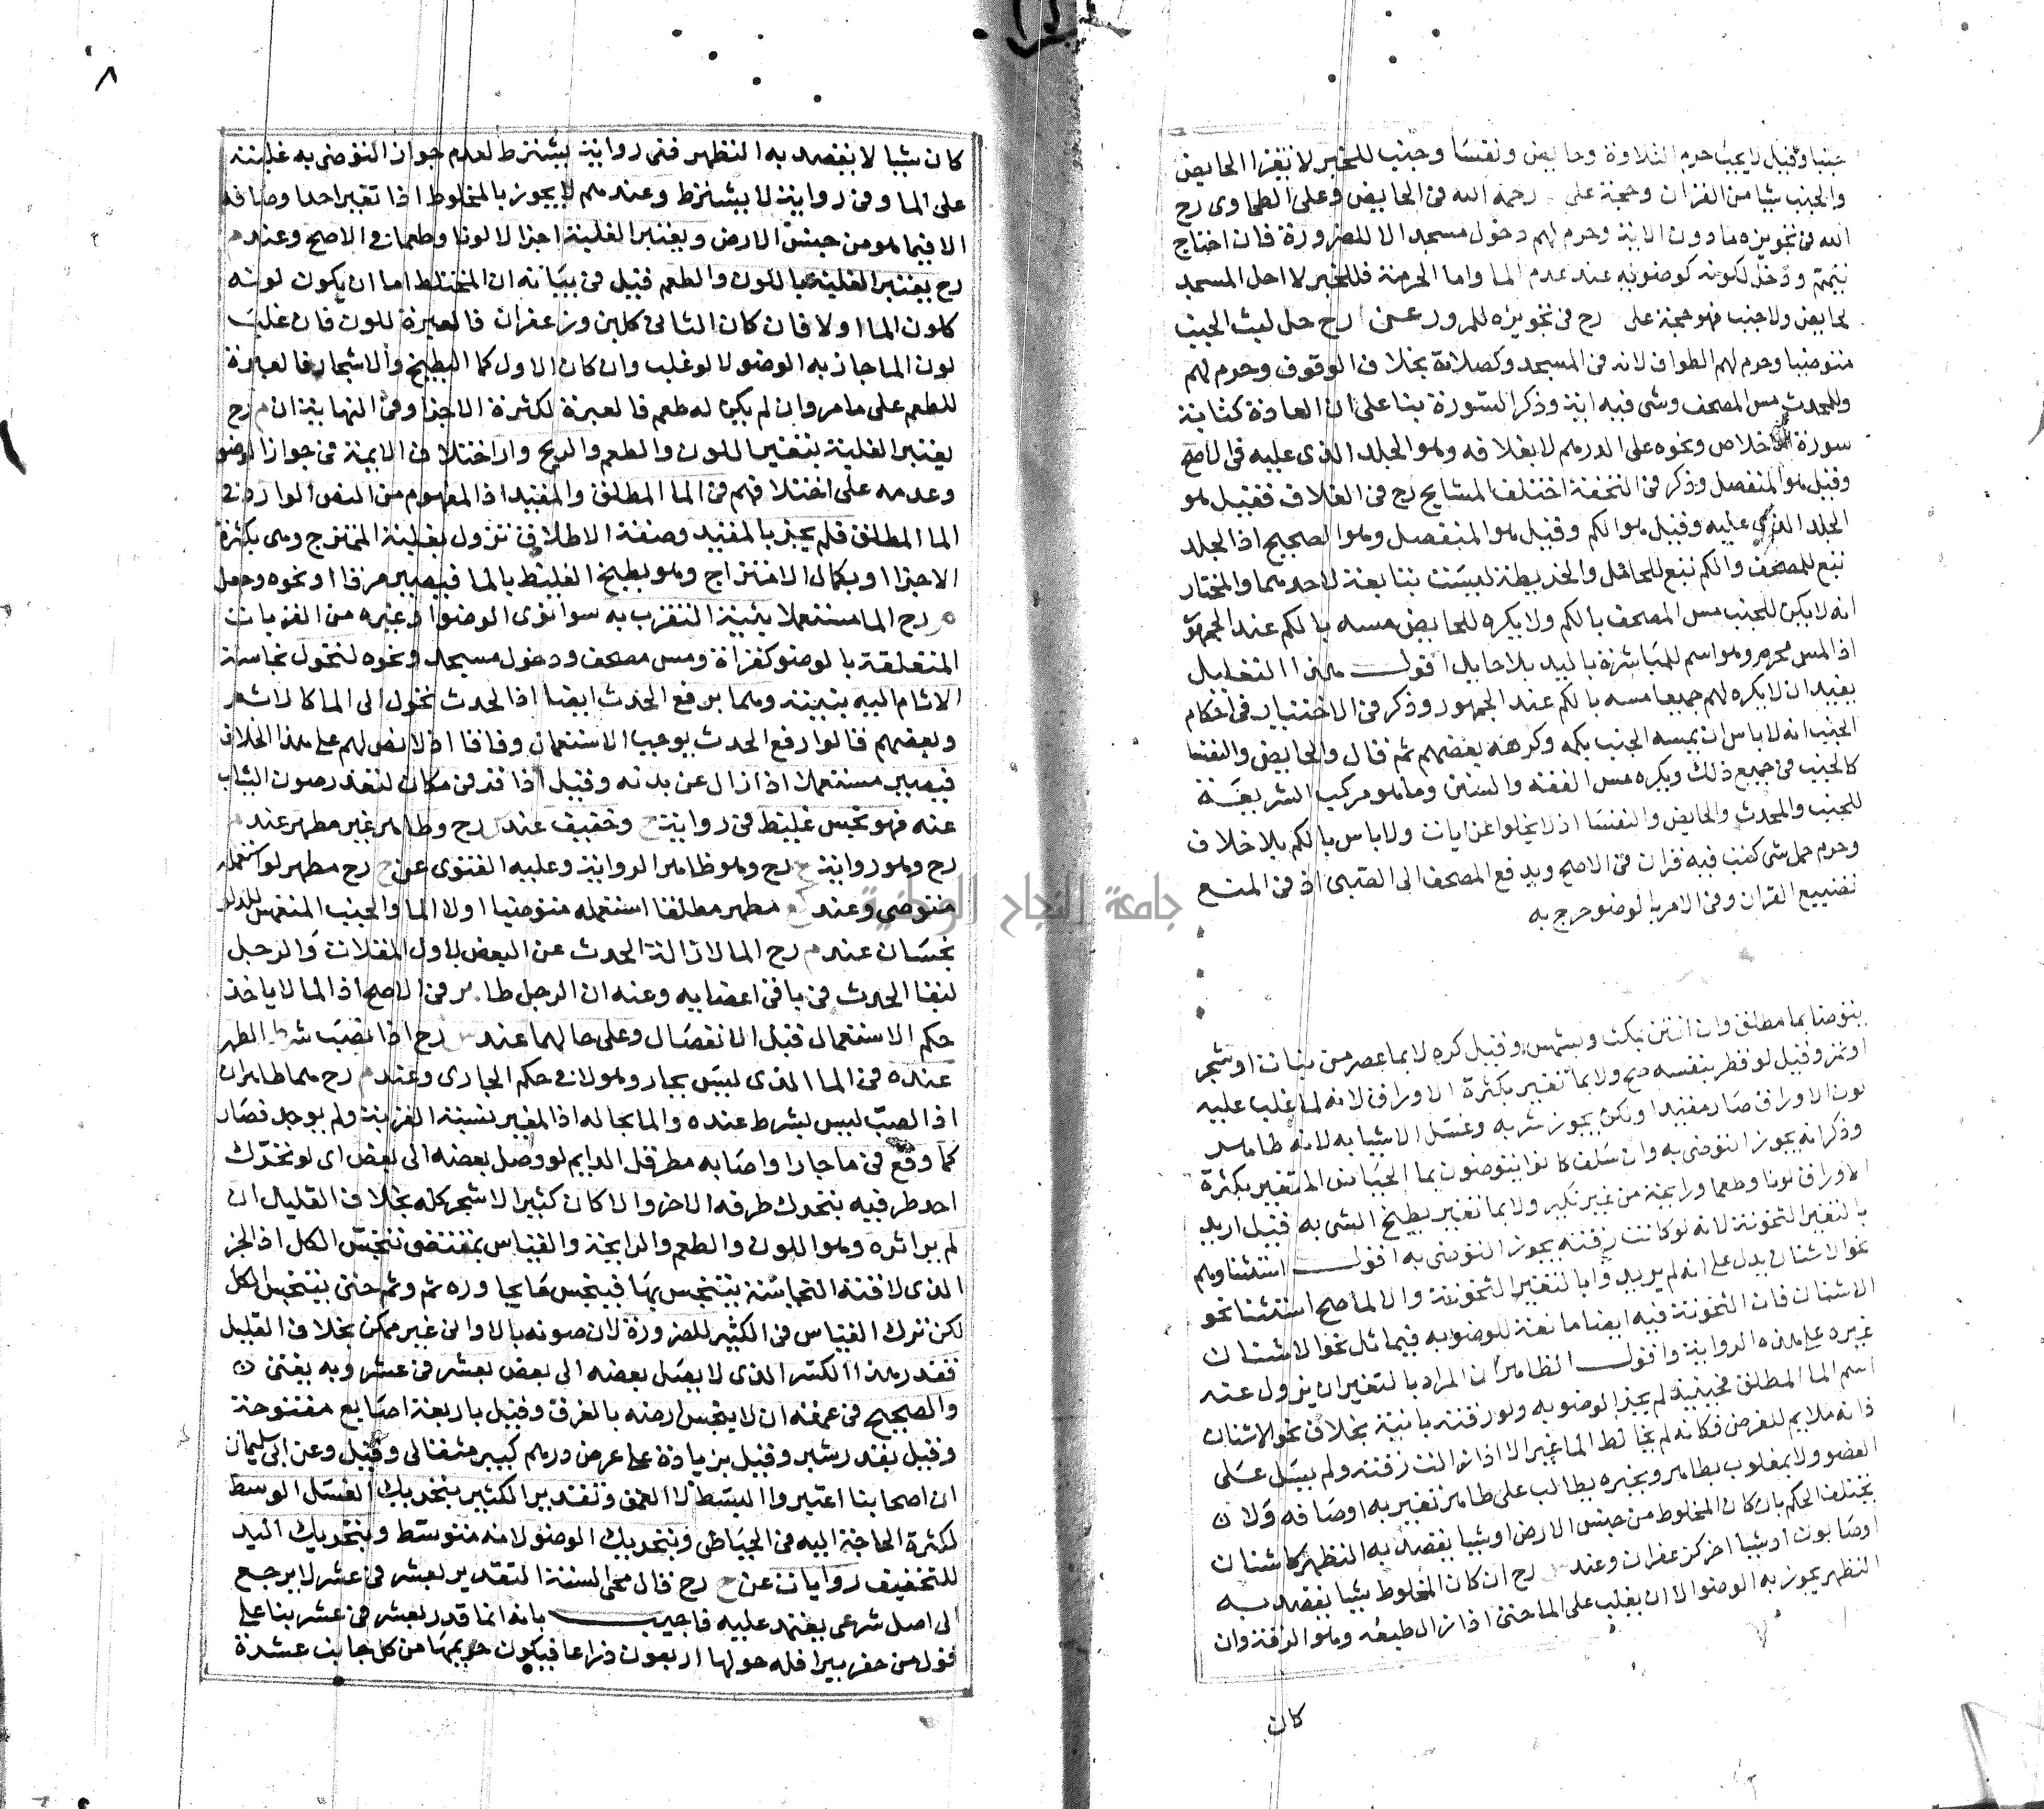 جنبا وقيل لا يجب حرم التلاوة وحايض ونفسا وجنب للخبر لا تقرا الحايض
والجنب شيا من القران وحجة على رحمه الله في الحايض وعلى الطحاوى رح
الله في تجويزه ما دون الاية وحرم لهم دخول مسجد الا للضرورة فان احتاج
تيمم ودخل لكونه كوضويه عند عدم الما واما الحرمة فللخبر لا احل المسجد
لحايض ولا جنب فهو حجة على رح في تجويزه للمرور عن رح حل لبث الجنب
متوضيا وحرم لهم الطواف لانه في المسجد وكصلاة بخلاف الوقوف وحرم لهم
وللمحدث مس المصحف وشى فيه اية وذكر السورة بنا على ان العادة كتابة
سورة الاخلاص ونحوه على الدرهم لا بغلافه وهو الجلد الذى عليه في الاصح
وقيل هو المنفصل وذكر في التحفة اختلف المشايخ رح في الغلاف فقيل هو
الجلد الذى عليه وقيل هو الكم وقيل هو المنفصل وهو الصحيح اذ الجلد
تبع للمصحف والكم تبع للحامل والخريطة ليست بتابعة لاحدهما والمختار
انه لا يكن للجنب مس المصحف بالكم ولا يكره للحايض مسه بالكم عند الجمهور
اذ المس محرم وهو اسم للمباشرة باليد بلا حايل اقول هذا التعليل
يفيد ان لا يكره لهم جميعا مسه بالكم عند الجمهور وذكر في الاختيار في احكام
الجنب انه لا باس ان يمسه الجنب بكمه وكرهه بعضهم ثم قال والحايض والنفسا
كالجنب في جميع ذلك ويكره مس الفقه والسنن وما هو مركب الشريعة
للجنب والمحدث والحايض والنفسا اذ لا يخلوا عن ايات ولا باس بالكم بلا خلاف
وحرم حمل شى كتب فيه قران في الاصح ويدفع المصحف الى الصبى اذ في المنع
تضييع القران وفي الامر بالوضو حرج به
يتوضا بما مطلق وان انتن بمكث وبشمس وقيل كره لا بما عصر من نبات او شجر
او ثمر وقيل لو قطر بنفسه صح ولا بما تغير بكثرة الاوراق لانه لما غلب عليه
لون الاوراق صار مقيدا ولكن يجوز شربه وغسل الاشيا به لانه طاهر
وذكر انه يجوز التوضى به وان سلف كانوا يتوضون بما الحياض المتغير بكثرة
الاوراق لونا وطعما ورايحة من غير نكير ولا بما تغير بطبخ الشى به قيل اريد
بالتغير الثخونة لانه لو كانت رقته يجوز التوضى به اقول استثناوهم
نحو الاشنان يدل على انه لم يريدوا بالتغير الثخونة والا لما صح استثنا نحو
الاشنان فان الثخونة فيه ايضا مانعة للوضو به فيماثل نحو الاشنان
غيره على هذه الرواية واقول الظاهر ان المراد بالتغير ان يزول عنه
اسم الما المطلق فحينيذ لم يجز الوضو به ولو رقته باقية بخلاف نحو الاشنان
فانه ملايم للغرض فكانه لم يخالط الما غير الا اذا زالت رقته ولم يسل على
العضو ولا بمغلوب بطاهر وبخيره يطالب على طاهر تغير به اوصافه ولان
يختلف الحكم بان كان المخلوط من جنس الارض او شيا يقصد به التطهر كاشنان
او صابون او شيا اخر كزعفران وعند رح ان كان المخلوط شيا يقصد به
التطهر يجوز به الوضو الا ان يغلب على الما حتى اذا زال طبعه وهو الرقة وان
كان
٨
كان شيا لا يقصد به التطهر ففى رواية يشترط لعدم جواز التوضى به غلبته
على الما وفي رواية لا يشترط وعندهم لا يجوز بالمخلوط اذا تغير احد اوصافه
الا فيما هو من جنس الارض ويعتبر الغلبة اجزا لا لونا وطعما في الاصح وعند م
رح يعتبر الغلبة باللون والطعم فقيل في بيانه ان المختلط اما ان يكون لونه
كلون الما او لا فان كان الثانى كلبن وزعفران فالعبرة للون فان غلب
لون الما جاز به الوضو لا لو غلب وان كان الاول كما البطيخ والاشجار فالعبرة
للطعم على ما مر وان لم يكن له طعم فالعبرة لكثرة الاجزا وفي النهاية ان م رح
يعتبر الغلبة بتغير اللون والطعم والريح واراختلاف الايمة في جواز الوضو
وعدمه على اختلافهم في الما المطلق والمقيد اذ المفهوم من النص الوارد في
الما المطلق فلم يجز بالمقيد وصفة الاطلاق تزول بغلبة الممتزج وهى بكثرة
الاجزا او بكمال الامتزاج وهو بطبخ الغليظ بالما فيصير مرقا او نحوه وجعل
م رح الما مستعملا بنية التقرب به سوا نوى الوضوا وغيره من القربات
المتعلقة بالوضو كقراة ومس مصحف ودخول مسجد ونحوه لتحول نجاسة
الاثام اليه بنيته وهما برفع الحدث ايضا اذ الحدث تحول الى الما كالاثم
وبعضهم قالوا رفع الحدث يوجب الاستعمال وفاقا اذ لا نص لهم على هذا الخلاف
فيصير مستعملا اذا زال عن بدنه وقيل اذا قر في مكان لتعذر صون الثياب
عنه فهو نجس غليظ في رواية ح وخفيف عند س رح وطاهر غير مطهر عند م
رح وهو رواية ح رح وهو ظاهر الرواية وعليه الفتوى عن ح رح مطهر لو استعمله
متوضى وعند مطهر مطلقا استعمله متوضيا او لا الما والجنب المنغمس للدلو
نجسان عند م رح الما لازالة الحدث عن البعض باول الملاقات والرجل
لبقا الحدث في باقى اعضايه وعنه ان الرجل طاهر في الاصح اذ الما لا ياخذ
حكم الاستعمال قبل الانفصال وعلى حالهما عند س رح اذ الصب شرط الطهر
عنده في الما الذى ليس بجار وهو لا في حكم الجارى وعند م رح هما طاهران
اذ الصب ليس بشرط عنده والما بحاله اذ المغير نسبة القربة ولم يوجد فصار
كما وقع في ما جارا واصابه مطر قل الدايم لو وصل بعضه الى بعض اى لو تحرك
احد طرفيه يتحرك طرفه الاخر والا كان كثيرا لا ينجر كله بخلاف القليل ان
لم ير اثره وهو اللون والطعم والرايحة والقياس يقتضى تنجس الكل اذ الجز
الذى لاقته النجاسة يتنجس بها فينجس ما يجاوره ثم وثم حتى يتنجس الكل
لكن ترك القياس في الكثير للضرورة لان صونه بالاوانى غير ممكن بخلاف القليل
فقدر هذا الكثير الذى لا يصل بعضه الى بعض بعشر في عشر وبه يفتى
والصحيح في عمقه ان لا ينجس ارضه بالغرف وقيل باربعة اصابع مفتوحة
وقيل بقدر شبر وقيل بزيادة على عرض درهم كبير مثقالى وقيل وعن ابى سليمان
ان اصحابنا اعتبروا البسط لا العمق وتقدير الكثير بتحريك الغسل الوسط
لكثرة الحاجة اليه في الحياض وبتحريك الوضو لانه متوسط وبتحريك اليد
للتخفيف روايات عن ح رح قال محى السنة التقدير بعشر في عشر لا يرجع
الى اصل شرعى يعتمد عليه فاجيب بانه انما قدر بعشر في عشر بنا على
قول من حفر بيرا فله حولها اربعون ذراعا فيكون حريمها من كل جانب عشرة
جامعة النجاح الوطنية